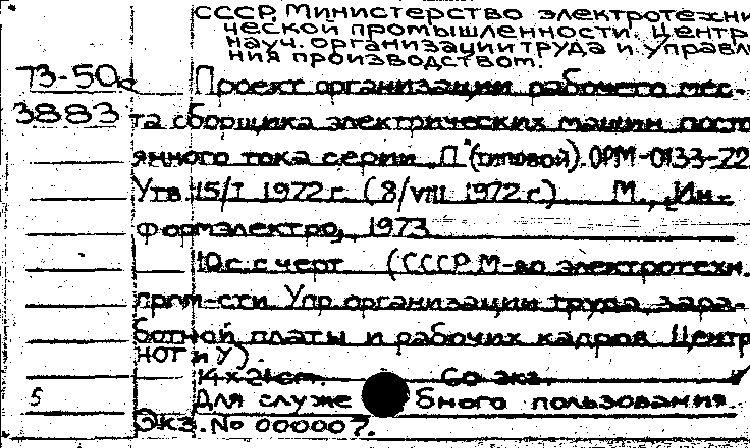 СССР. Министерство электротехни
ческой промышленности. Центр
науч. организации труда и управле
ния производством.
73-50с Проект организации рабочего мес-
3883 та сборщика электрических машин посто
янного тока серии „П"(типовой). ОРМ-0133-72
Утв. 15/I 1972 г. (8/VIII 1972 г). М., „Ин-
формэлектро, 1973
10 с. с черт (СССР. М-во электротехн.
пром-сти Упр организации труда, зара-
ботной платы и рабочих кадров Центр
НОТ и У).
14 х 21 cm. 60 экз.
5 Для служе бного пользования
Экз. № 000007.